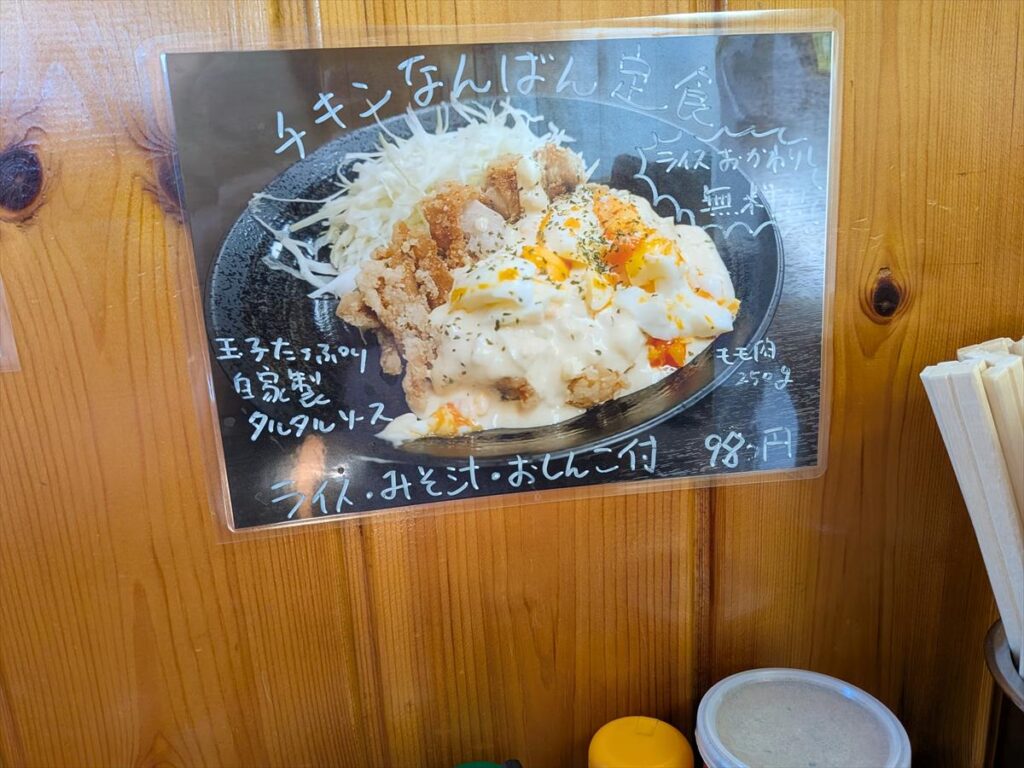 チキンなんばん定食
ライスおかわりし
無料
玉子たっぷり
自家製
タルタルソース
モモ肉
250g
ライス・みそ汁・おしんこ付 980円